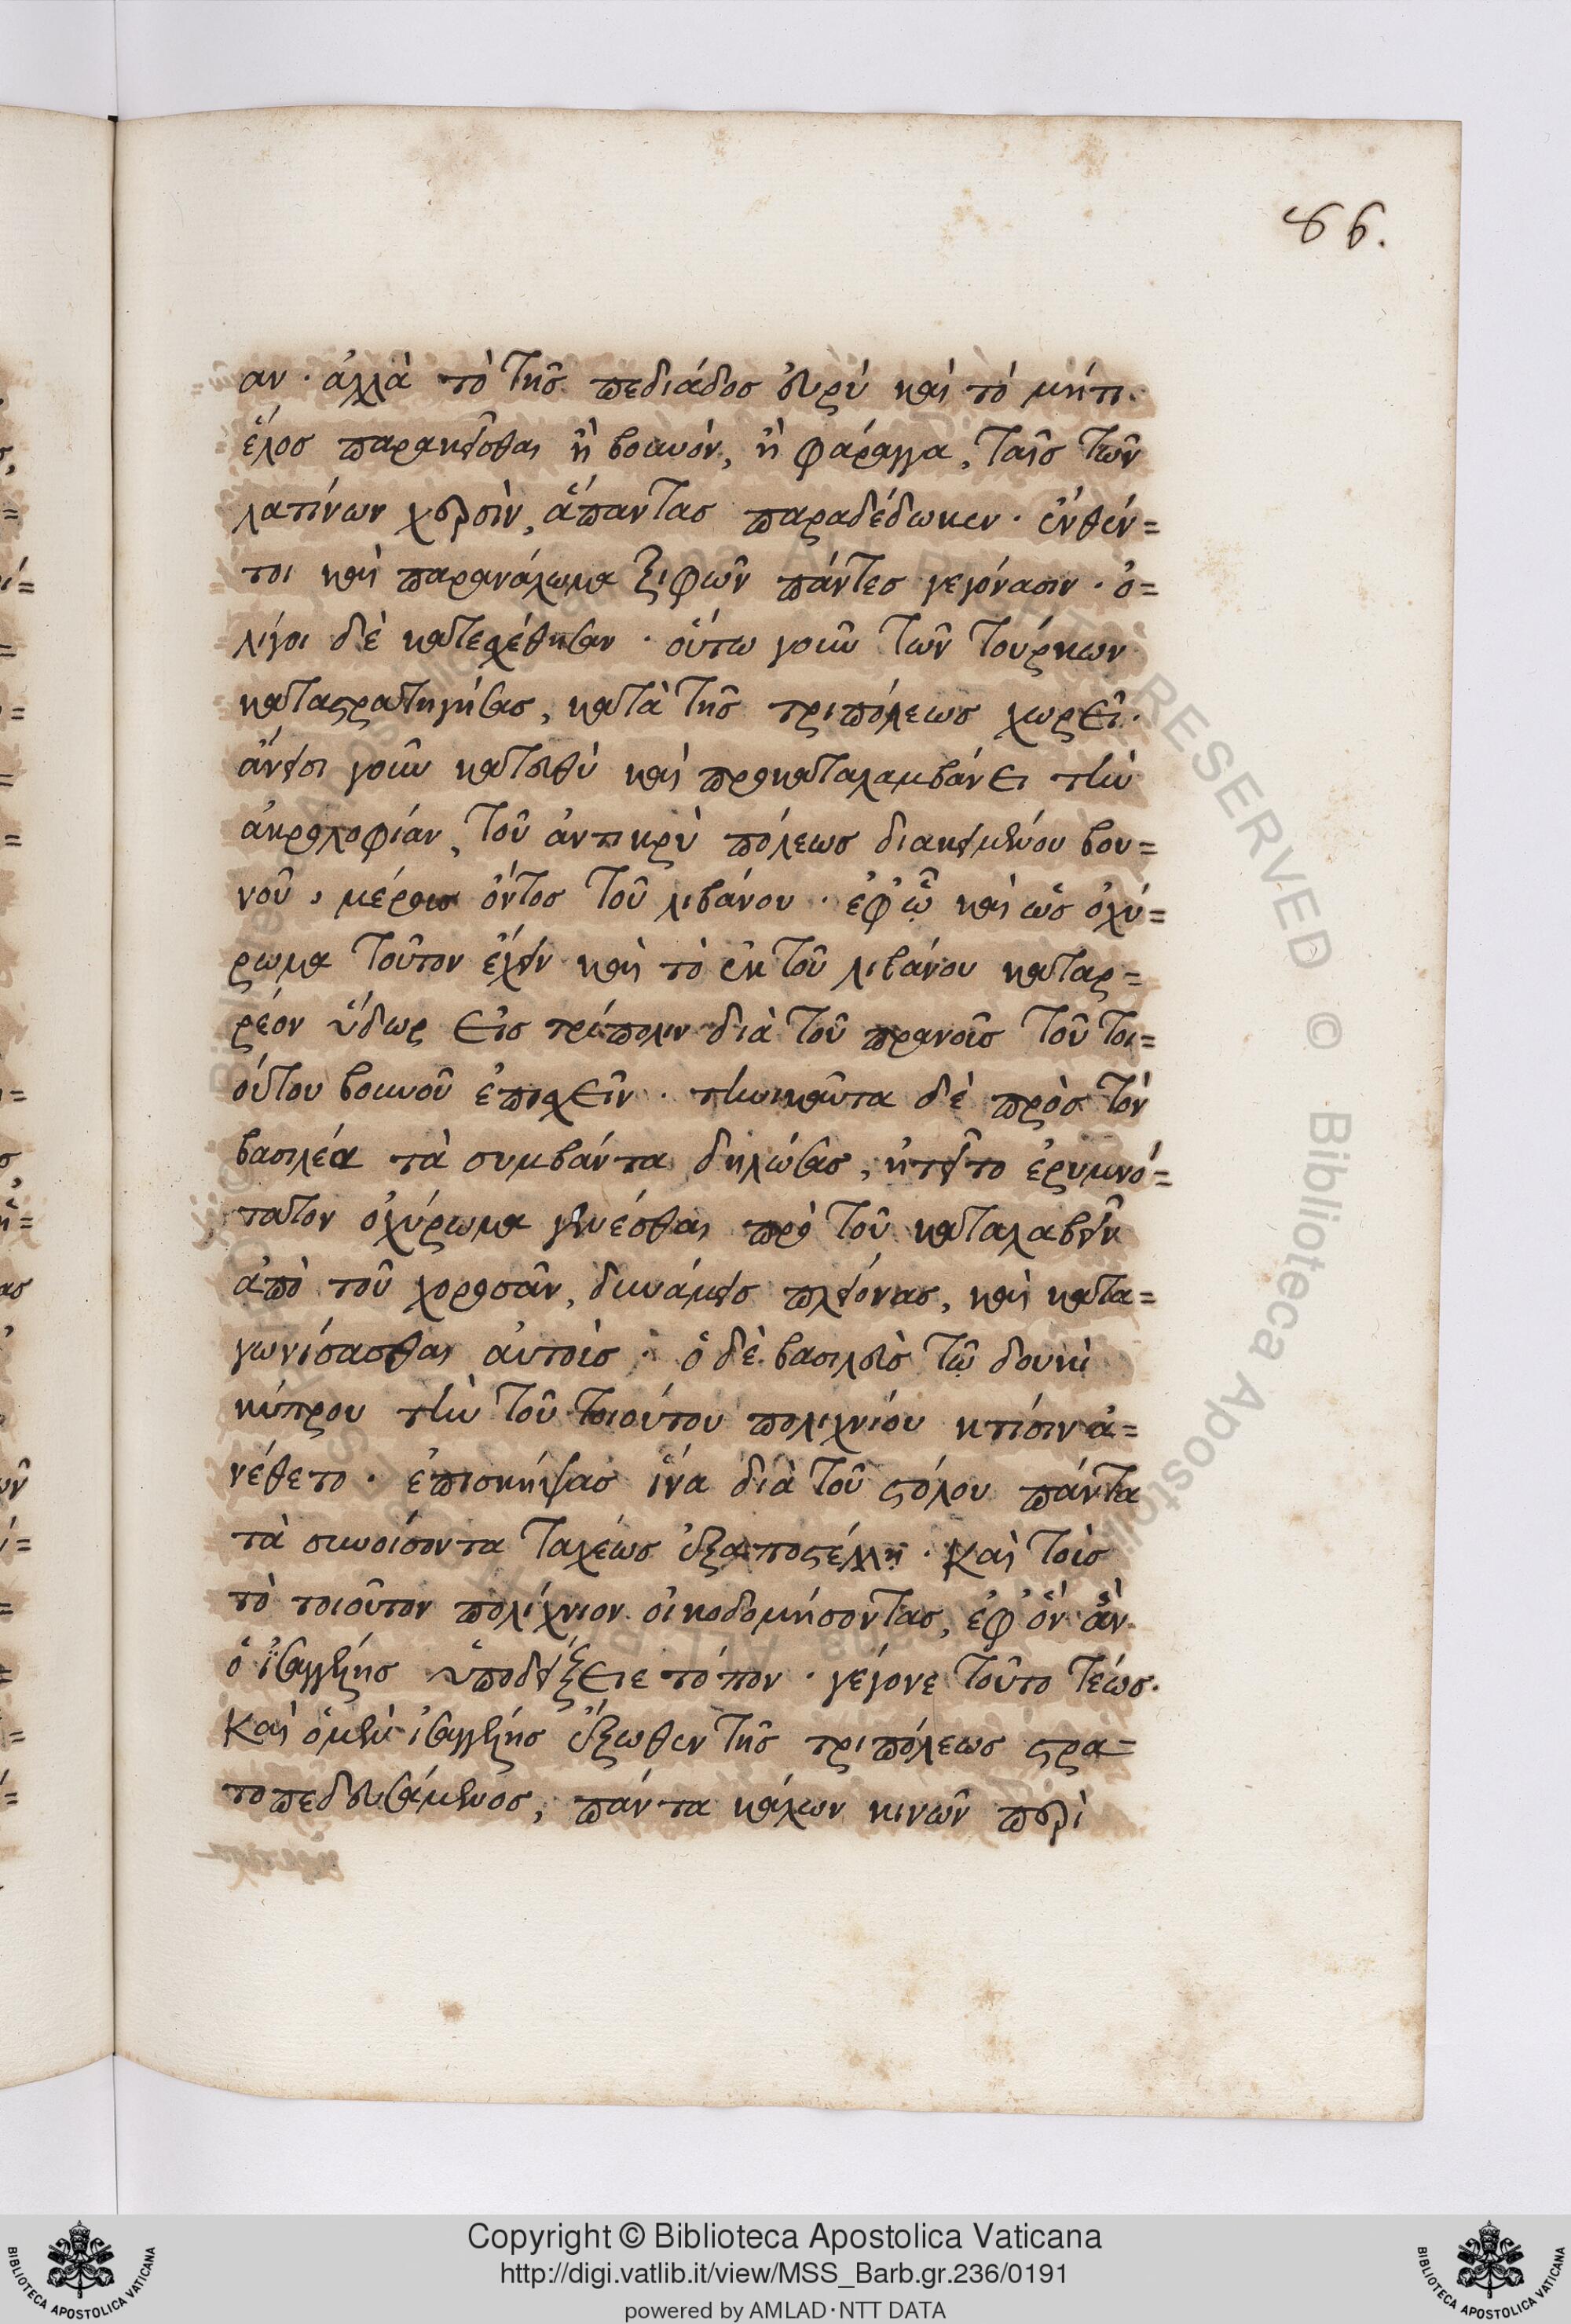 86.
αν · ἀλλὰ τὸ τῆς πεδιάδος εὐρύ καὶ τό μήτι
ἕλος παρακεῖσθαι ἢ βουνόν, ἢ φάραγγα, ταῖς τῶν
λατίνων χερσὶν, ἅπαντας παραδέδωκεν · ἐνθέν=
τοι καὶ παρανάλωμα ξιφῶν πάντες γεγόνασιν · ὀ=
λίγοι δὲ κατεσχέθησαν · οὕτω γοῦν τῶν τούρκων
καταστρατηγήσας, κατὰ τῆς τριπόλεως χωρεῖ·
ἄνεισι γοῦν κατευθὺ καὶ προκαταλαμβάνει τὴν
ἀκρολοφίαν, τοῦ ἀντικρὺ πόλεως διακειμένου βου=
νοῦ, μέρους ὄντος τοῦ λιβάνου · ἐφ' ᾧ καὶ ὡς ὀχύ=
ρωμα τοῦτον ἔχειν καὶ τὸ ἐκ τοῦ λιβάνου καταρ=
ρέον ὕδωρ εἰς τρίπολιν διὰ τοῦ πρανοῦς τοῦ τοι=
ούτου βουνοῦ ἐποχεῖν · τηνικαῦτα δὲ πρὸς τὸν
βασιλέα τὰ συμβάντα δηλώσας, ᾐτεῖτο ἐρυμνό=
τατον ὀχύρωμα γενέσθαι πρὸ τοῦ καταλαβεῖν
ἀπὸ τοῦ χοροσᾶν, δυνάμεις πλείονας, καὶ κατα=
γωνίσασθαι αὐτοὺς · ὁ δὲ βασιλεὺς τῷ δουκὶ
κύπρου τὴν τοῦ τοιούτου πολιχνίου κτίσιν ἀ=
νέθετο · ἐπισκήψας ἵνα διὰ τοῦ στόλου πάντα
τὰ συνοίσοντα ταχέως ἐξαποστέλλῃ · Καὶ τοὺς
τὸ τοιοῦτον πολίχνιον οἰκοδομήσοντας, ἐφ' ὃν ἂν
ὁ ἰσαγγέλης ὑποδείξειε τόπον · γέγονε τοῦτο τέως·
Καὶ ὁ μὲν ἰσαγγέλης ἔξωθεν τῆς τριπόλεως στρα=
τοπεδευσάμενος, πάντα κάλων κινῶν περὶ
Copyright © Biblioteca Apostolica Vaticana
http://digi.vatlib.it/view/MSS_Barb.gr.236/0191
powered by AMLAD·NTT DATA